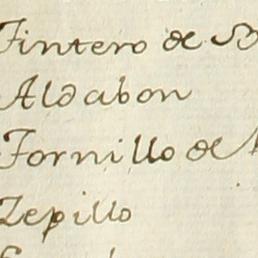 Tintero de
Aldabon
Tornillo de
Zepillo